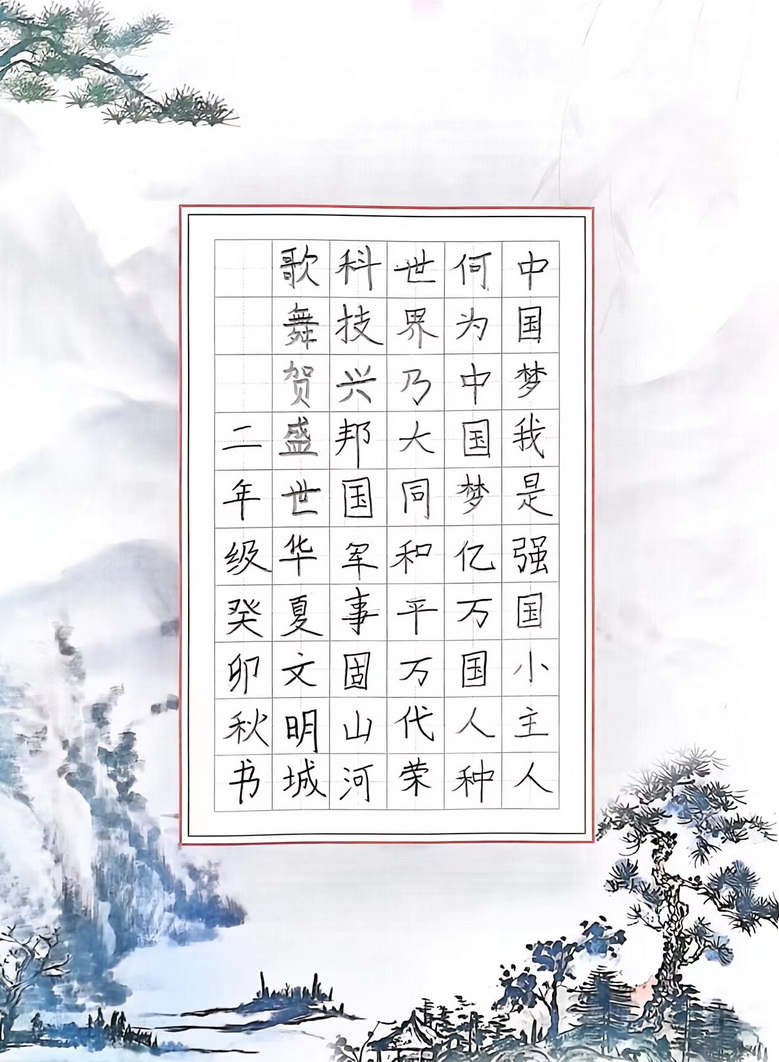 中国梦我是强国小主人
何为中国梦亿万国人种
世界乃大同和平万代荣
科技兴邦国军事固山河
歌舞贺盛世华夏文明城
二年级癸卯秋书